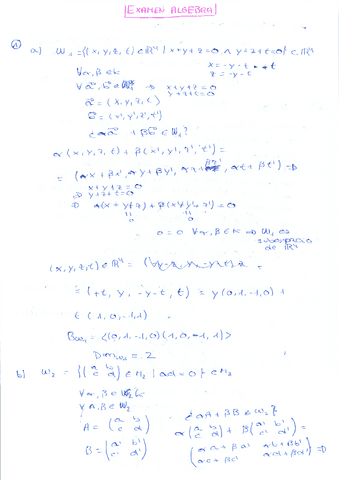 EXAMEN ALGEBRA
① a) W₁ = {(x,y,z,t) ∈ ℝ⁴ | x+y+z=0 ∧ y+z+t=0} ⊂ ℝ⁴
∀α,β∈K
x = -y-z
z = -y-t
⇒ x+y+z=0
y+z+t=0
= (x,y,z,t)
= (x',y',z',t')
∈ W₁?
α(x,y,z,t) + β(x',y',z',t') =
= (αx+βx', αy+βy', αz+βz', αt+βt') ⇒
x+y+z=0
⇒ y+z+t=0
⇒ α(x+y+z) + β(x'+y'+z') = 0
0 0
0=0 ∀α,β∈K ⇒ W₁ es
subespacio
de ℝ⁴
(x,y,z,t) ∈ ℝ⁴ =
= (+t, y, -y-t, t) = y(0,1,-1,0) +
t(1,0,-1,1)
= <(0,1,-1,0)(1,0,-1,1)>
= 2
b) W₂ = {(a b
c d) ∈ M₂ | ad=0} ⊂ M₂
∀α,β∈
∈ W₂
¿αA+βB ∈ W₂?
A = (a b
c d)
α(a b
c d) + β(a' b'
c' d') =
B = (a' b'
c' d')
(αa+βa' αb+βb'
αc+βc' αd+βd') ⇒